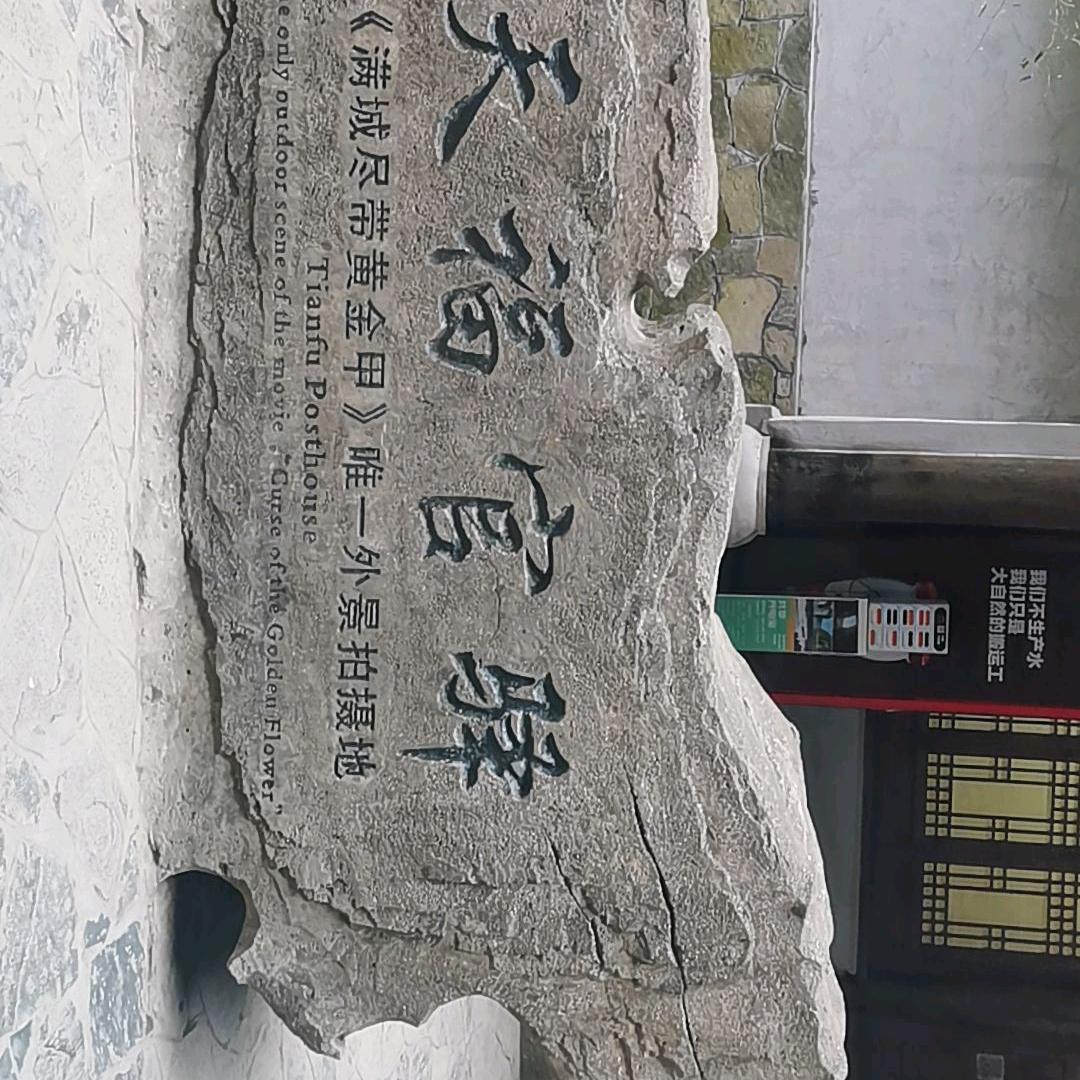 天福官驿
《满城尽带黄金甲》唯一外景拍摄地
Tianfu Posthouse
only outdoor scene of the movie :"Curse of the Golden Flower"
我们不生产水
我们只是
大自然的搬运工